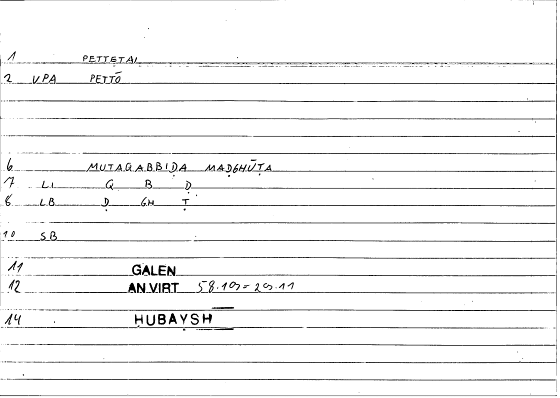 1 PETTETAI
2 V.PA PETTŌ
6 MUTAQABBIḌA MAḌGHŪṬA
7 LI Q B Ḍ
8 LB Ḍ GH Ṭ
10 SB
11 GALEN
12 AN.VIRT 58.10 = 20.11
14 ḤUBAYSH